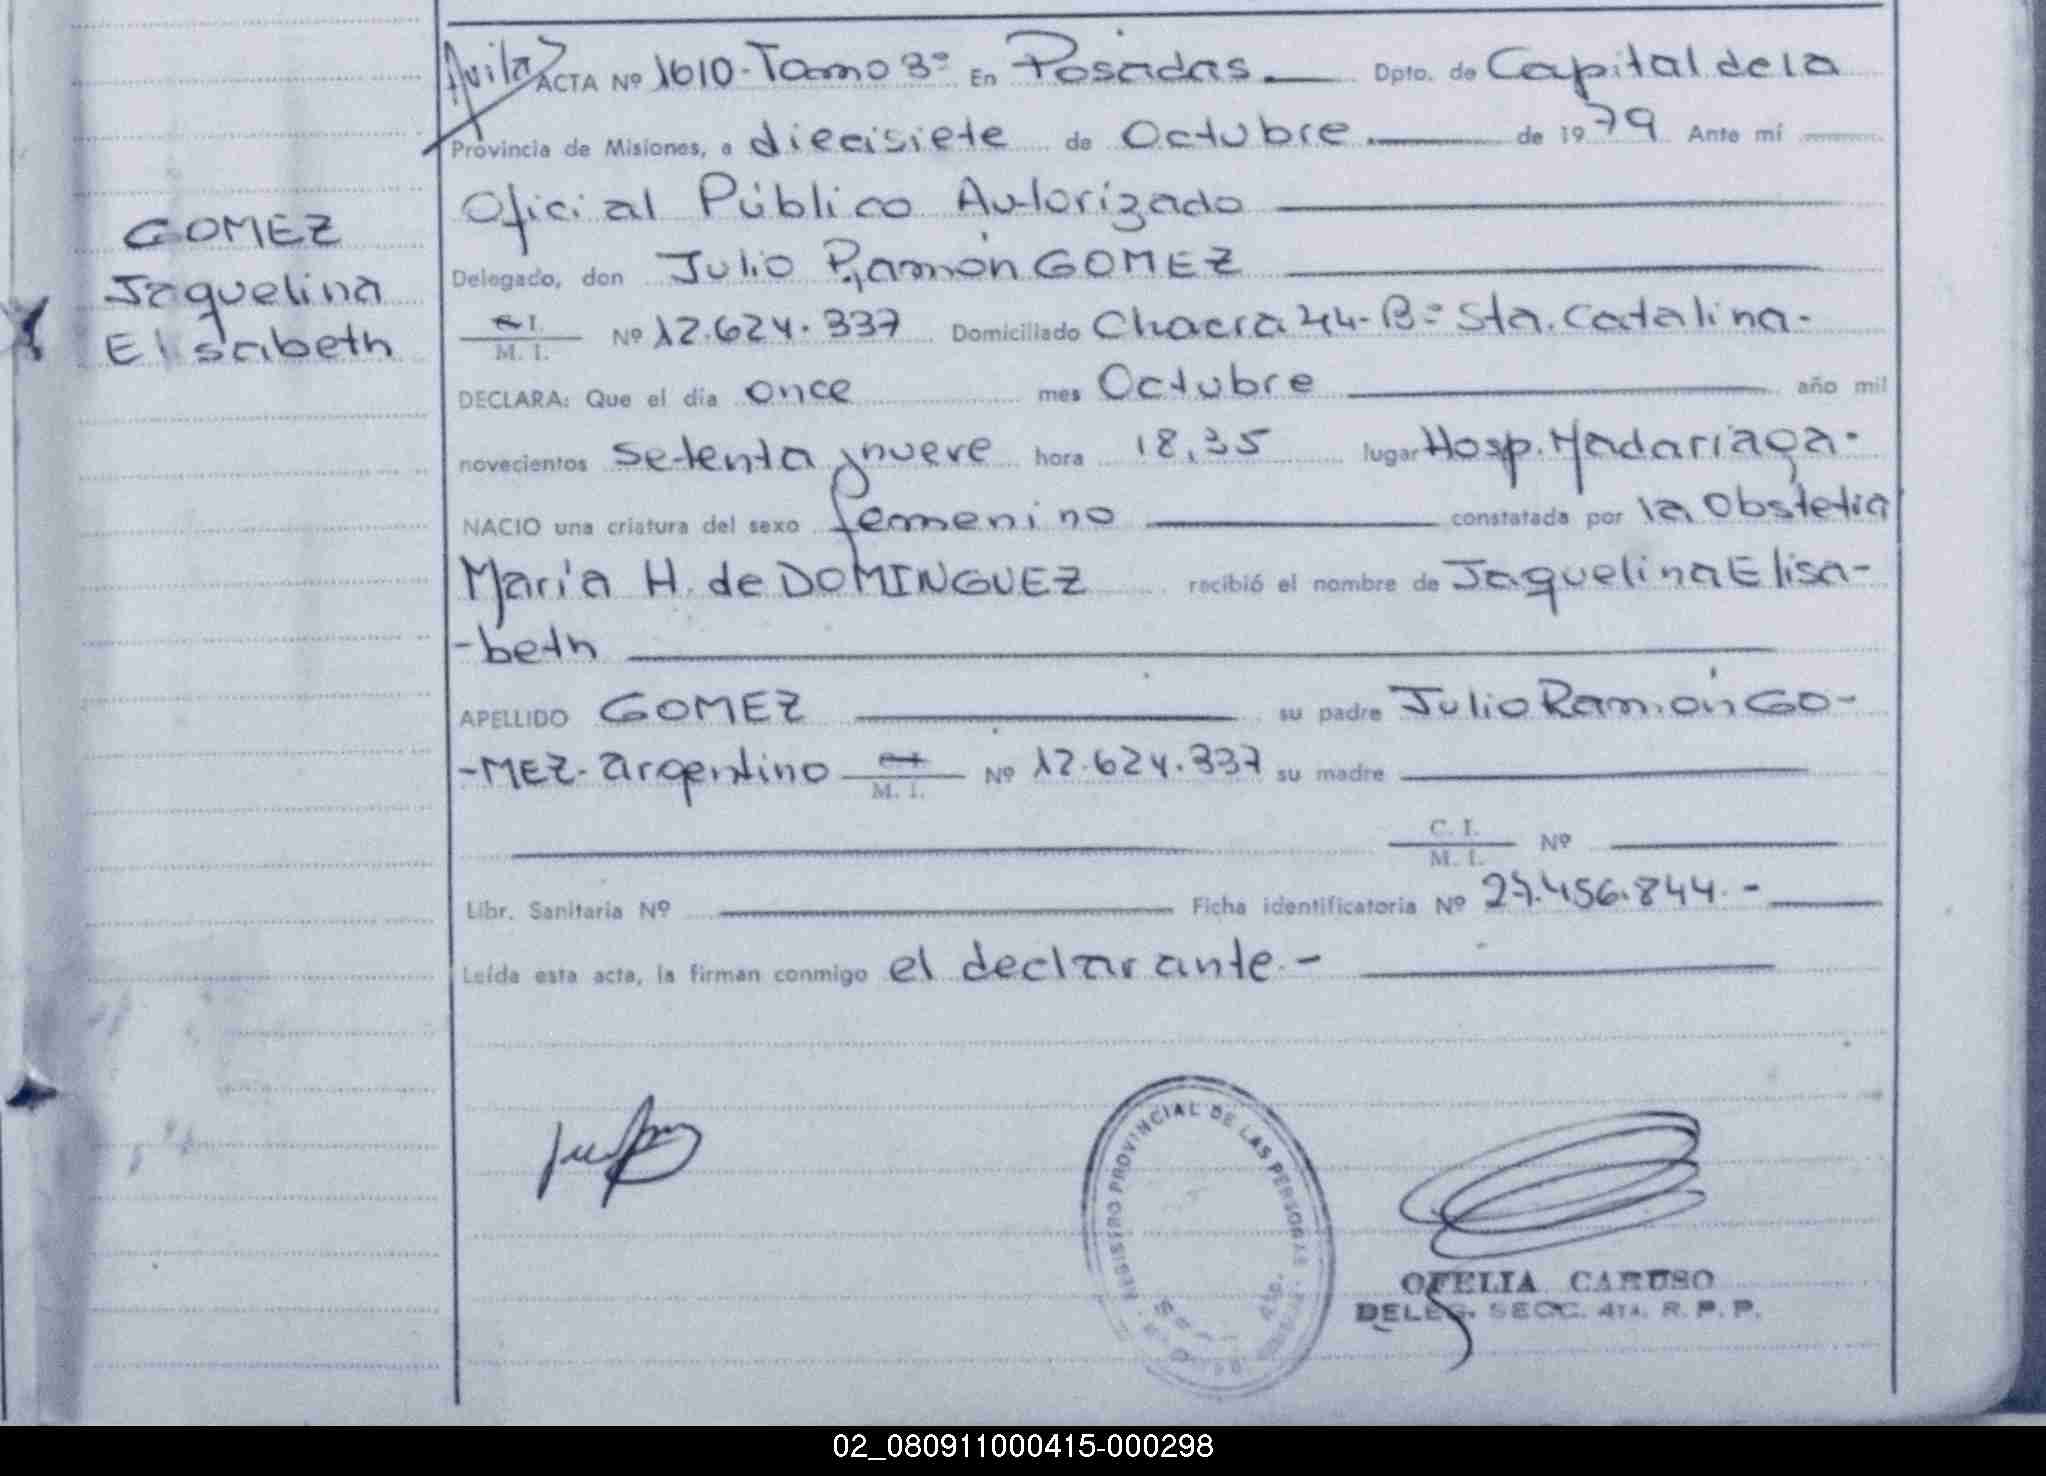 Avila ACTA Nº 1610-Tomo 3º En Posadas Dpto. de Capital de la
Provincia de Misiones, a diecisiete de Octubre de 1979 Ante mí
Oficial Público Autorizado
GOMEZ
Jaquelina
Elisabeth
Delegado, don Julio Ramón GOMEZ
C.I.
M. I. Nº 12.624.337 Domiciliado Chacra 44-Bº Sta. Catalina-
DECLARA: Que el día once mes Octubre año mil
novecientos setenta y nueve hora 18,35 lugar Hosp. Madariaga-
NACIO una criatura del sexo femenino constatada por la Obstetra
María H. de DOMINGUEZ recibió el nombre de Jaquelina Elisa-
-beth
APELLIDO GOMEZ su padre Julio Ramón GO-
-MEZ- argentino M. I. Nº 12.624.337 su madre
C. I.
M. I. Nº
Libr. Sanitaria Nº Ficha identificatoria Nº 27.456.844.-
Leída esta acta, la firman conmigo el declarante-
REGISTRO PROVINCIAL DE LAS PERSONAS
OFELIA CARUSO
DELEG. SECC. 4TA. R. P. P.
02_080911000415-000298